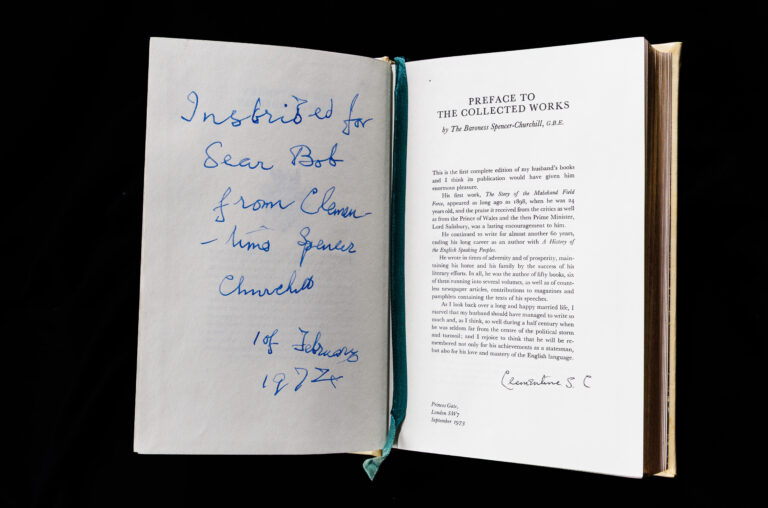 Inscribed for
Dear Bob
from Clemen-
-tine Spencer
Churchill
1 of February
1974
PREFACE TO
THE COLLECTED WORKS
by The Baroness Spencer-Churchill, G.B.E.
This is the first complete edition of my husband's books
and I think its publication would have given him
enormous pleasure.
His first work, The Story of the Malakand Field
Force, appeared as long ago as 1898, when he was 24
years old, and the praise it received from the critics as well
as from the Prince of Wales and the then Prime Minister,
Lord Salisbury, was a lasting encouragement to him.
He continued to write for almost another 60 years,
ending his long career as an author with A History of
the English Speaking Peoples.
He wrote in times of adversity and of prosperity, main-
taining his home and his family by the success of his
literary efforts. In all, he was the author of fifty books, six
of them running into several volumes, as well as of count-
less newspaper articles, contributions to magazines and
pamphlets containing the texts of his speeches.
As I look back over a long and happy married life, I
marvel that my husband should have managed to write so
much and, as I think, so well during a half century when
he was seldom far from the centre of the political storm
and turmoil; and I rejoice to think that he will be re-
membered not only for his achievements as a statesman,
but also for his love and mastery of the English language.
Clementine S. C
Princes Gate,
London SW7
September 1973